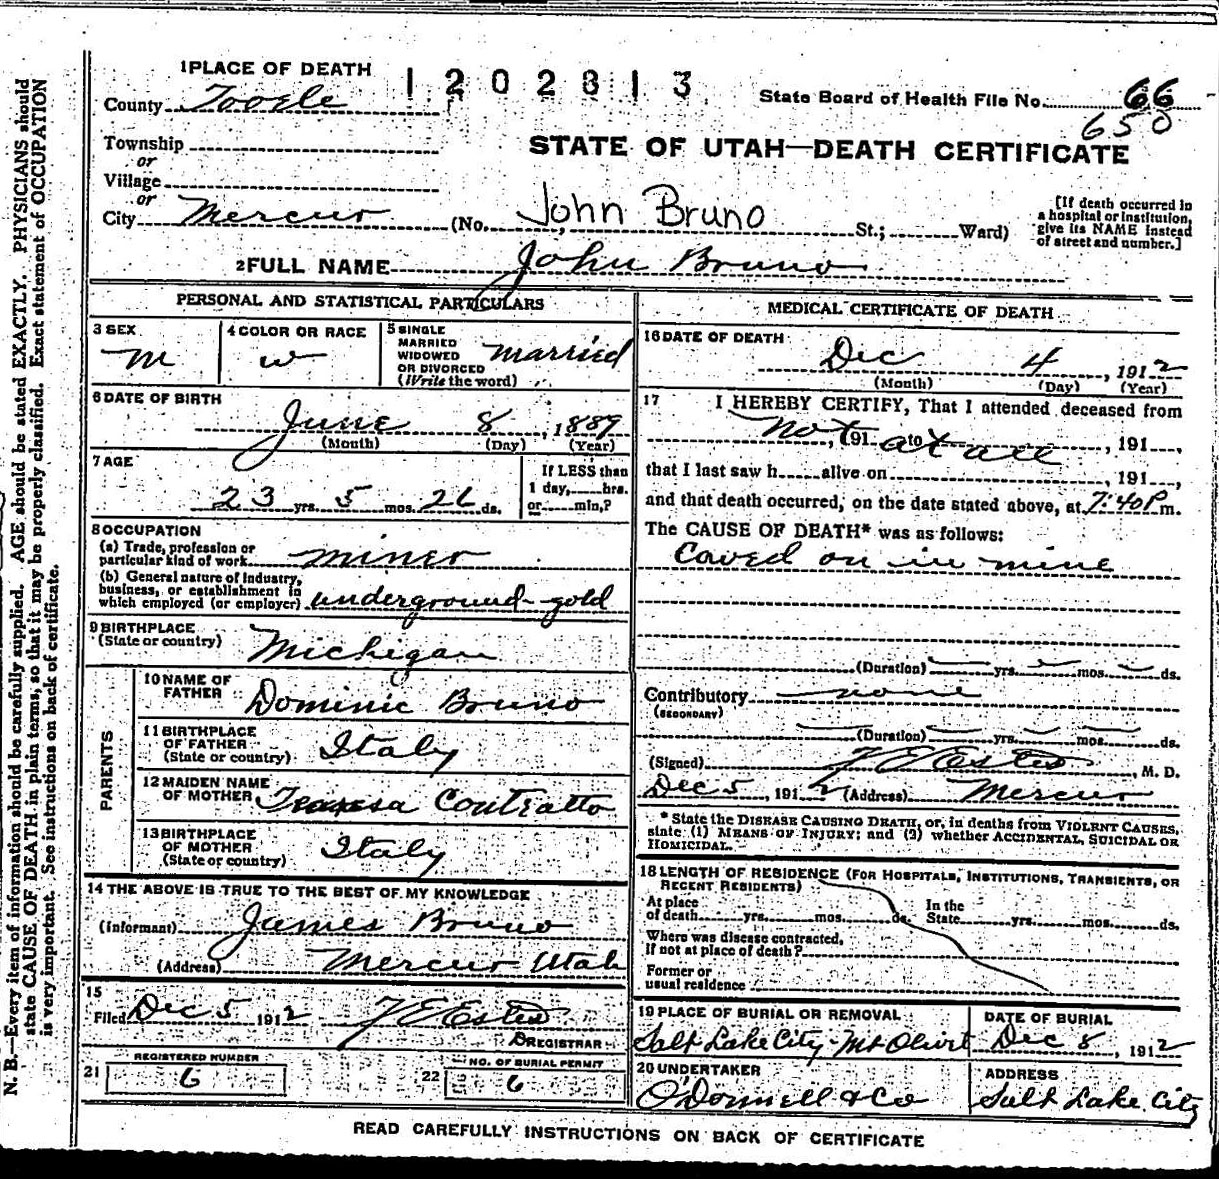 1 PLACE OF DEATH
1 2 0 2 8 1 3
County Tooele
State Board of Health File No. 66
650
Township
or
Village
or
City Mercur
STATE OF UTAH—DEATH CERTIFICATE
(No. John Bruno St.; Ward)
[If death occurred in
a hospital or institution,
give its NAME instead
of street and number.]
2 FULL NAME John Bruno
PERSONAL AND STATISTICAL PARTICULARS
3 SEX
M
4 COLOR OR RACE
W
5 SINGLE
MARRIED
WIDOWED
OR DIVORCED
(Write the word)
married
6 DATE OF BIRTH
June 8, 1889
(Month) (Day) (Year)
7 AGE
23 yrs. 5 mos. 26 ds.
If LESS than
1 day, hrs.
or min.?
8 OCCUPATION
(a) Trade, profession or
particular kind of work miner
(b) General nature of industry,
business, or establishment in
which employed (or employer) underground-gold
9 BIRTHPLACE
(State or country) Michigan
PARENTS
10 NAME OF
FATHER Dominic Bruno
11 BIRTHPLACE
OF FATHER
(State or country) Italy
12 MAIDEN NAME
OF MOTHER Contratto
13 BIRTHPLACE
OF MOTHER
(State or country) Italy
14 THE ABOVE IS TRUE TO THE BEST OF MY KNOWLEDGE
(Informant) James Bruno
(Address) Mercur Utah
15
Filed Dec 5 1912
REGISTRAR
21 REGISTERED NUMBER
6
22 NO. OF BURIAL PERMIT
6
MEDICAL CERTIFICATE OF DEATH
16 DATE OF DEATH
Dec 4, 1912
(Month) (Day) (Year)
17 I HEREBY CERTIFY, That I attended deceased from
not, 191 at to all, 191
that I last saw h alive on , 191
and that death occurred, on the date stated above, at 7:40 P m.
The CAUSE OF DEATH* was as follows:
Caved on in mine
(Duration) yrs. mos. ds.
Contributory none
(SECONDARY)
(Duration) yrs. mos. ds.
(Signed) , M. D.
Dec 5, 1912 (Address) Mercur
* State the DISEASE CAUSING DEATH, or, in deaths from VIOLENT CAUSES,
state (1) MEANS OF INJURY; and (2) whether ACCIDENTAL, SUICIDAL OR
HOMICIDAL.
18 LENGTH OF RESIDENCE (FOR HOSPITALS, INSTITUTIONS, TRANSIENTS, OR
RECENT RESIDENTS)
At place
of death yrs. mos. ds.
In the
State yrs. mos. ds.
Where was disease contracted,
if not at place of death?
Former or
usual residence
19 PLACE OF BURIAL OR REMOVAL
Salt Lake City-Mt Olivet
DATE OF BURIAL
Dec 8, 1912
20 UNDERTAKER
O'Donnell & Co
ADDRESS
Salt Lake City
READ CAREFULLY INSTRUCTIONS ON BACK OF CERTIFICATE
N. B.—Every item of information should be carefully supplied. AGE should be stated EXACTLY. PHYSICIANS should
state CAUSE OF DEATH in plain terms, so that it may be properly classified. Exact statement of OCCUPATION
is very important. See instructions on back of certificate.